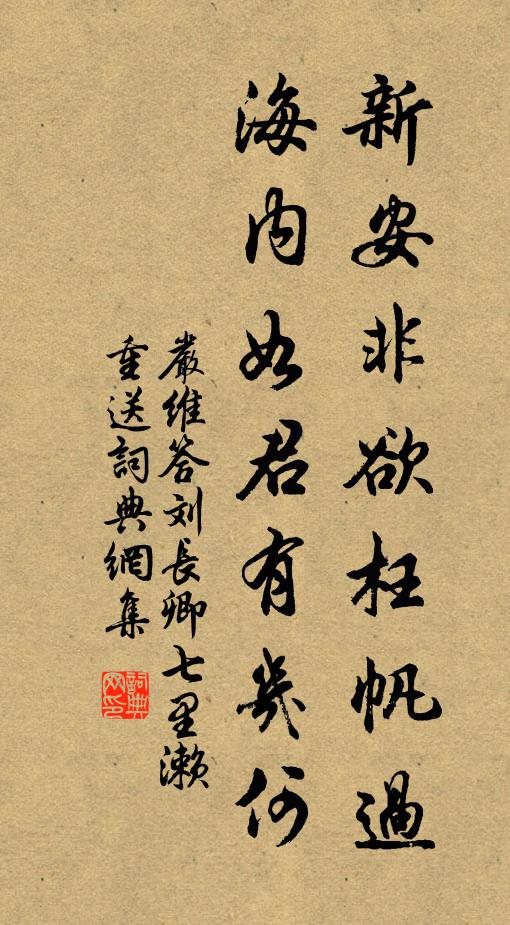 新安非欲枉帆過
海內如君有幾何
嚴維答刘長卿七里瀨
重送詞典網集
詞典網印